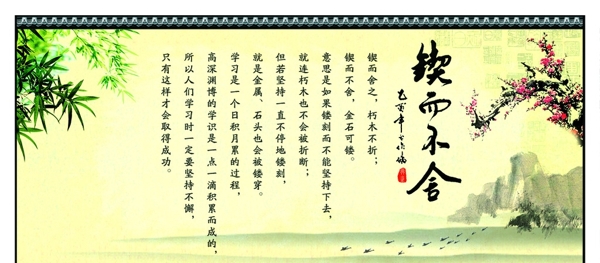 锲而不舍
锲而舍之，朽木不折；
锲而不舍，金石可镂。
意思是如果镂刻而不能坚持下去，
就连朽木也不会被折断；
但若坚持一直不停地镂刻，
就是金属、石头也会被镂穿。
学习是一个日积月累的过程，
高深渊博的学识是一点一滴积累而成的，
所以人们学习时一定要坚持不懈，
只有这样才会取得成功。